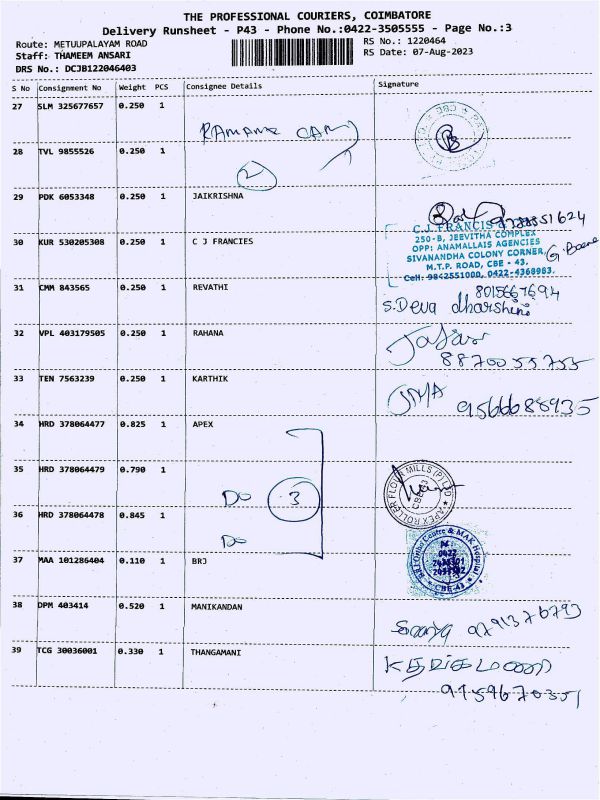 THE PROFESSIONAL COURIERS, COIMBATORE
Delivery Runsheet - P43 - Phone No.:0422-3505555 - Page No.:3
Route: METUUPALAYAM ROAD
RS No.: 1220464
Staff: THAMEEM ANSARI
RS Date: 07-Aug-2023
DRS No.: DCJB122046403
S No Consignment No Weight PCS Consignee Details Signature
27 SLM 325677657 0.250 1
28 TVL 9855526 0.250 1
2
29 PDK 6053348 0.250 1 JAIKRISHNA
30 KUR 530205308 0.250 1 C J FRANCIES
C.J. FRANCIS
250-B, JEEVITHA COMPLEX
OPP: ANAMALLAIS AGENCIES
SIVANANDHA COLONY CORNER,
M.T.P. ROAD, CBE - 43.
Cell: 9842551000, 0422-4368983.
31 CMM 843565 0.250 1 REVATHI
8015667694
S.Deva dharshini
32 VPL 403179505 0.250 1 RAHANA
8870055755
33 TEN 7563239 0.250 1 KARTHIK
9566688935
34 HRD 378064477 0.825 1 APEX
35 HRD 378064479 0.790 1
Do 3
APEX ROLLER FLOUR MILLS (P) LTD
CBE-43
36 HRD 378064478 0.845 1
Do
37 MAA 101286404 0.110 1 BRJ
BRJ Ortho Centre & MAK Hospital
CBE-43
38 DPM 403414 0.520 1 MANIKANDAN
39 TCG 30036001 0.330 1 THANGAMANI